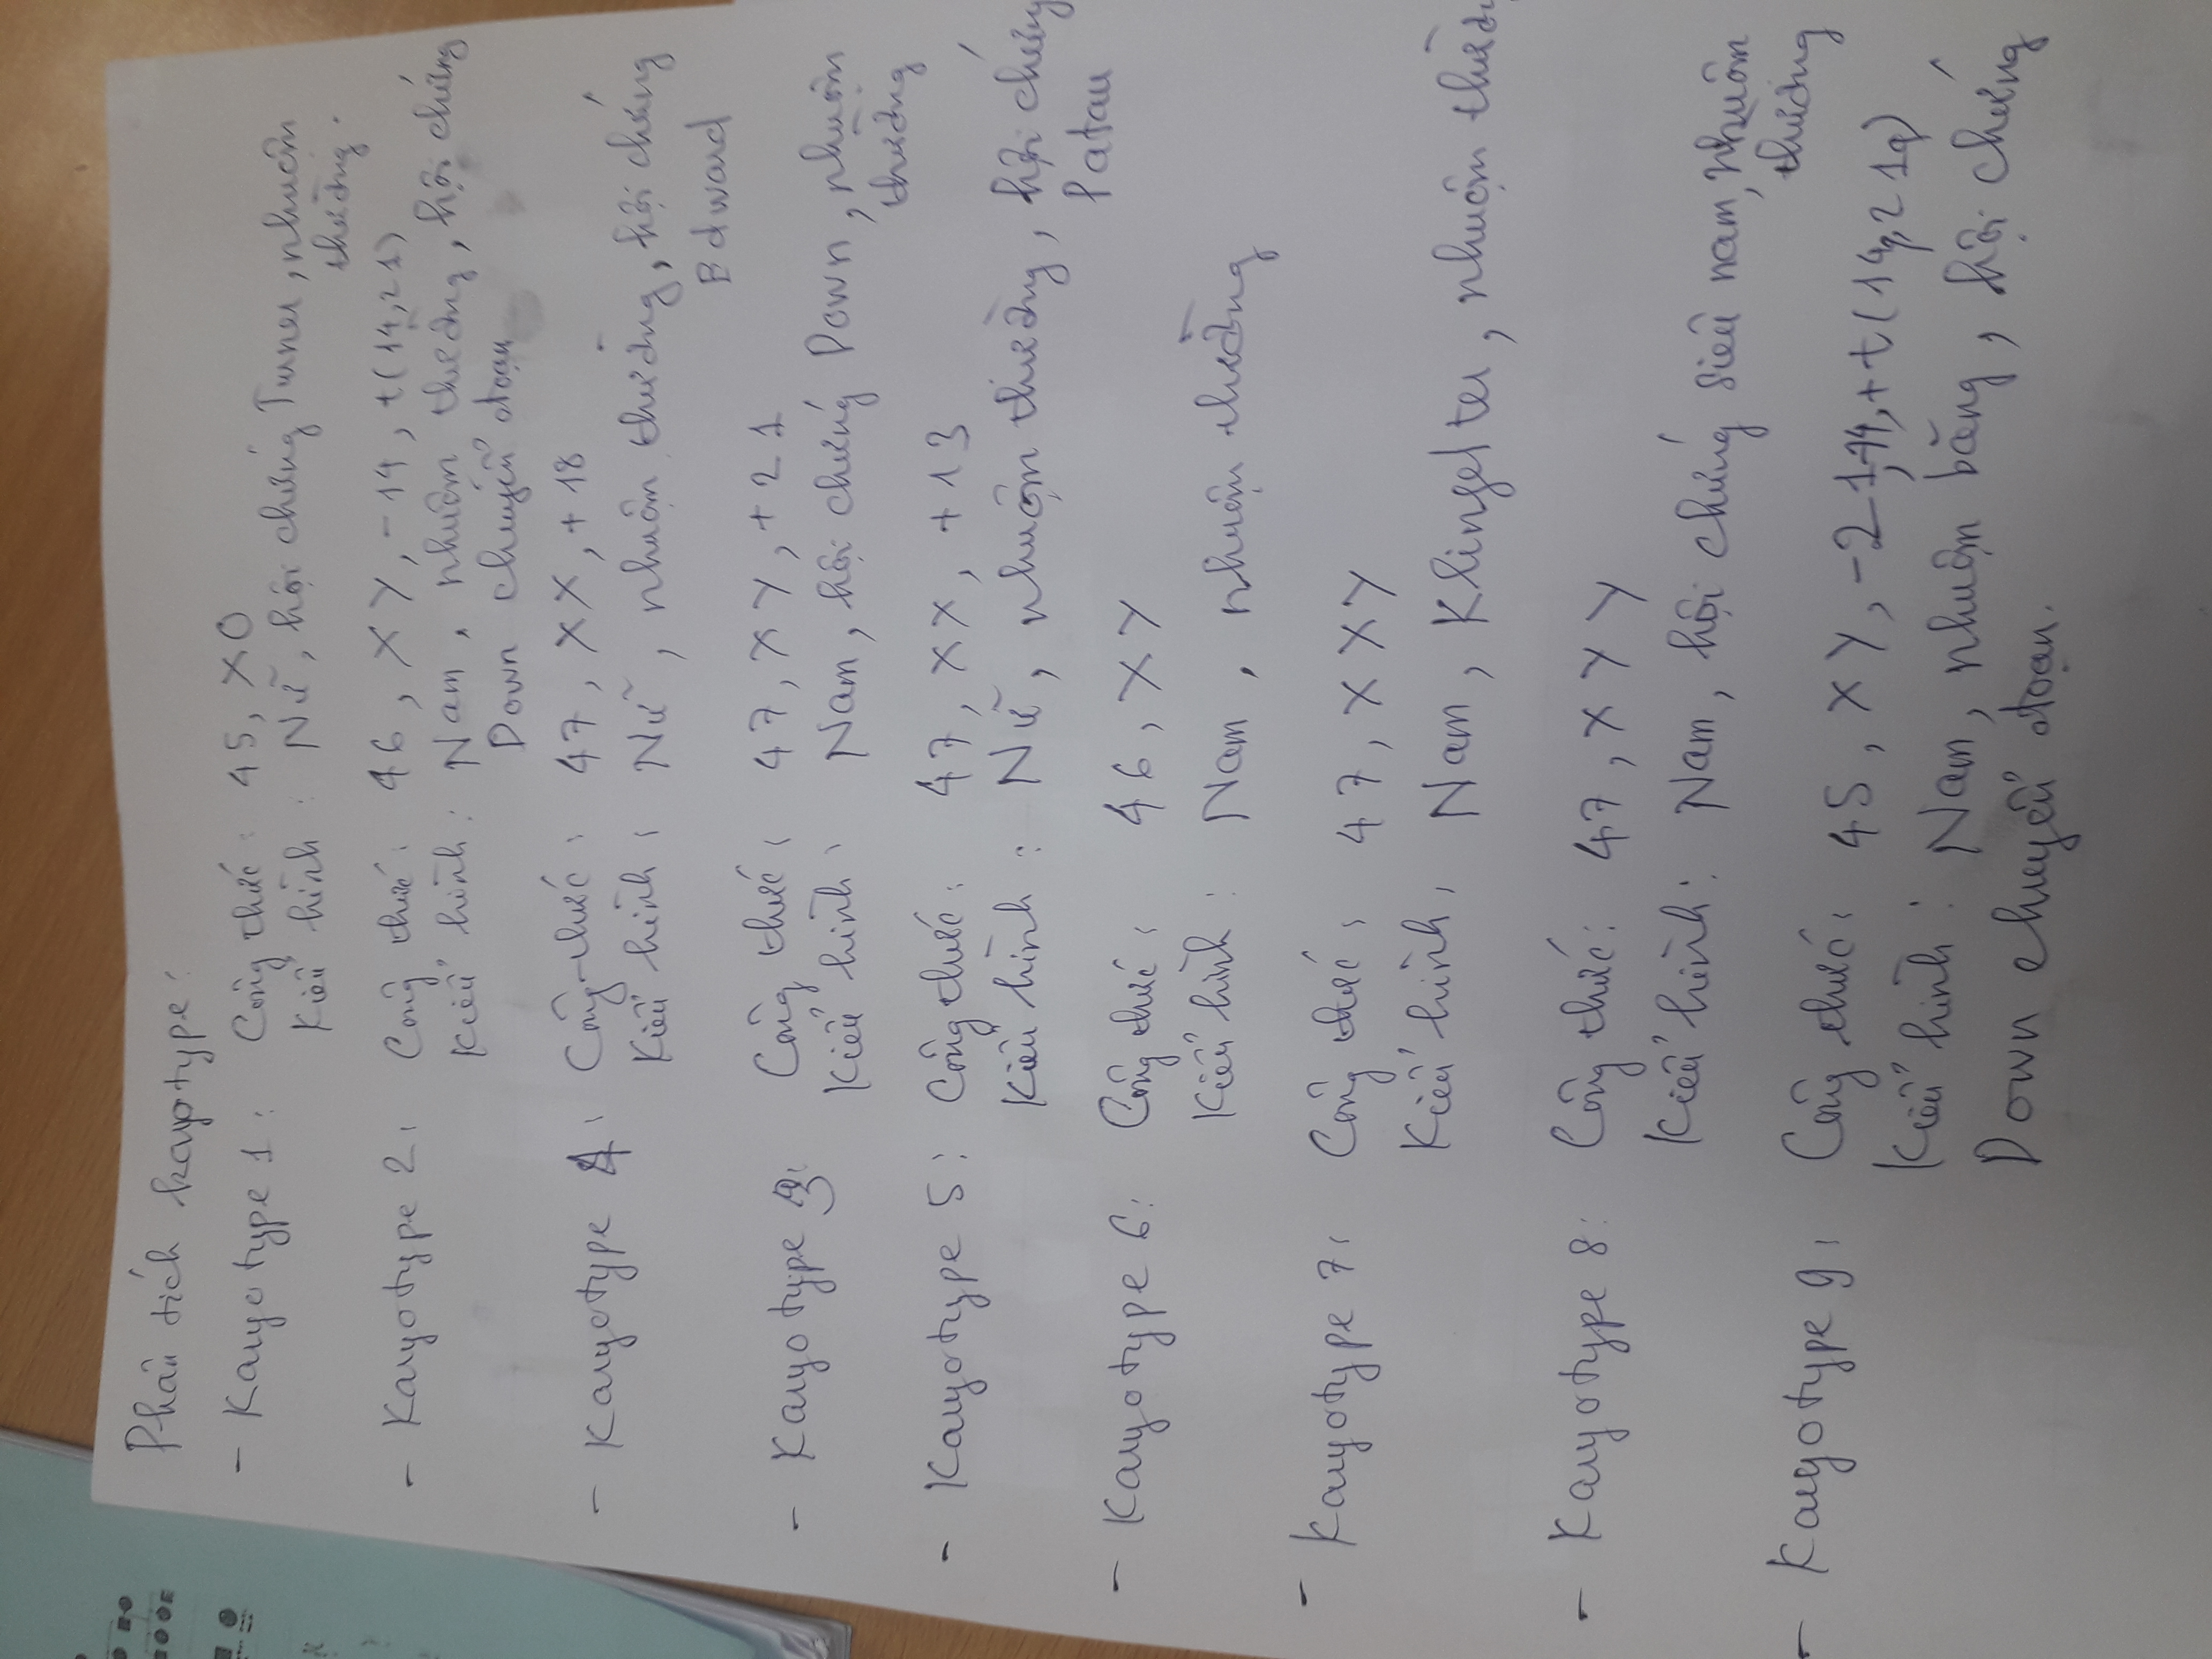 Phân tích karyotype:
- Karyotype 1: Công thức: 45, XO
Kiểu hình: Nữ, hội chứng Turner, nhuộm
thường.
- Karyotype 2: Công thức: 46, XY, -14, t(14,21)
Kiểu hình: Nam, nhuộm thường, hội chứng
Down chuyển đoạn
- Karyotype 4: Công thức: 47, XX, +18
Kiểu hình: Nữ, nhuộm thường, hội chứng
Edward
- Karyotype 3: Công thức: 47, XY, +21
Kiểu hình: Nam, hội chứng Down, nhuộm
thường
- Karyotype 5: Công thức: 47, XX, +13
Kiểu hình: Nữ, nhuộm thường, hội chứng
Patau
- Karyotype 6: Công thức: 46, XY
Kiểu hình: Nam, nhuộm thường
- Karyotype 7: Công thức: 47, XXY
Kiểu hình: Nam, Klingelter, nhuộm thườn
- Karyotype 8: Công thức: 47, XYY
Kiểu hình: Nam, hội chứng siêu nam, nhuôm
thường
- Karyotype 9: Công thức: 45, XY, -21,-14,+t(14q,21q)
Kiểu hình: Nam, nhuộm băng, hội chứng
Down chuyển đoạn.